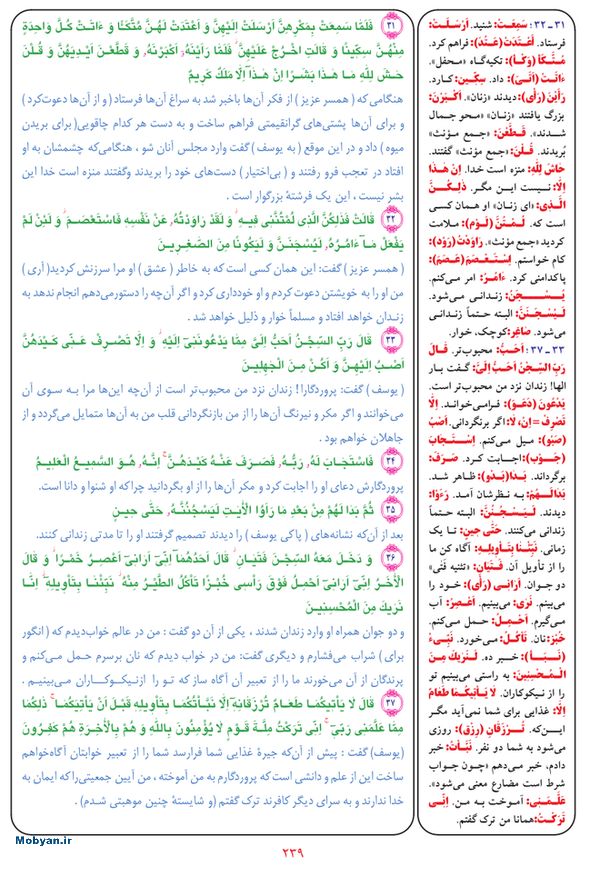 ۳۱ فَلَمَّا سَمِعَتْ بِمَكْرِهِنَّ أَرْسَلَتْ إِلَيْهِنَّ وَ أَعْتَدَتْ لَهُنَّ مُتَّكَئًا وَ ءَاتَتْ كُلَّ وَاحِدَةٍ
مِنْهُنَّ سِكِّينًا وَ قَالَتِ اخْرُجْ عَلَيْهِنَّ فَلَمَّا رَأَيْنَهُ أَكْبَرْنَهُ وَ قَطَّعْنَ أَيْدِيَهُنَّ وَ قُلْنَ
حَاشَ لِلَّهِ مَا هَذَا بَشَرًا إِنْ هَذَا إِلَّا مَلَكٌ كَرِيمٌ
هنگامی که ( همسر عزیز ) از فکر آن‌ها باخبر شد به سراغ آن‌ها فرستاد ( و از آن‌ها دعوت‌کرد )
و برای آن‌ها پشتی‌های گرانقیمتی فراهم ساخت و به دست هر کدام چاقویی( برای بریدن
میوه ) داد و در این موقع ( به یوسف ) گفت وارد مجلس آنان شو ، هنگامی‌که چشمشان به او
افتاد در تعجب فرو رفتند و ( بی‌اختیار ) دست‌های خود را بریدند وگفتند منزه است خدا این
بشر نیست ، این یک فرشتهٔ بزرگوار است .
۳۲ قَالَتْ فَذَلِكُنَّ الَّذِي لُمْتُنَّنِي فِيهِ وَ لَقَدْ رَاوَدْتُهُ عَنْ نَفْسِهِ فَاسْتَعْصَمَ وَ لَئِنْ لَمْ
يَفْعَلْ مَا ءَامُرُهُ لَيُسْجَنَنَّ وَ لَيَكُونًا مِنَ الصَّغِرِينَ
( همسر عزیز ) گفت: این همان کسی است که به خاطر ( عشق ) او مرا سرزنش کردید( آری )
من او را به خویشتن دعوت کردم و او خودداری کرد و اگر آن‌چه را دستورمی‌دهم انجام ندهد به
زندان خواهد افتاد و مسلماً خوار و ذلیل خواهد شد .
۳۳ قَالَ رَبِّ السِّجْنُ أَحَبُّ إِلَيَّ مِمَّا يَدْعُونَنِي إِلَيْهِ وَ إِلَّا تَصْرِفْ عَنِّي كَيْدَهُنَّ
أَصْبُ إِلَيْهِنَّ وَ أَكُنْ مِنَ الْجَهِلِينَ
( یوسف ) گفت: پروردگارا! زندان نزد من محبوب‌تر است از آن‌چه این‌ها مرا به سوی آن
می‌خوانند و اگر مکر و نیرنگ آن‌ها را از من بازنگردانی قلب من به آن‌ها متمایل می‌گردد و از
جاهلان خواهم بود .
۳۴ فَاسْتَجَابَ لَهُ رَبُّهُ فَصَرَفَ عَنْهُ كَيْدَهُنَّ إِنَّهُ هُوَ السَّمِيعُ الْعَلِيمُ
پروردگارش دعای او را اجابت کرد و مکر آن‌ها را از او بگردانید چراکه او شنوا و دانا است .
۳۵ ثُمَّ بَدَا لَهُمْ مِنْ بَعْدِ مَا رَأَوُا الْأَيَتِ لَيَسْجُنُنَّهُ حَتَّى حِينٍ
بعد از آن‌که نشانه‌های ( پاکی یوسف ) را دیدند تصمیم گرفتند او را تا مدتی زندانی کنند .
۳۶ وَ دَخَلَ مَعَهُ السِّجْنَ فَتَيَانِ قَالَ أَحَدُهُمَا إِنِّي أَرَانِي أَعْصِرُ خَمْرًا وَ قَالَ
الْأَخَرُ إِنِّي أَرَانِي أَحْمِلُ فَوْقَ رَأْسِي خُبْزًا تَأْكُلُ الطَّيْرُ مِنْهُ نَبِّئْنَا بِتَأْوِيلِهِ إِنَّا
نَرَيكَ مِنَ الْمُحْسِنِينَ
و دو جوان همراه او وارد زندان شدند ، یکی از آن دو گفت : من در عالم خواب‌دیدم که ( انگور
برای ) شراب می‌فشارم و دیگری گفت: من در خواب دیدم که نان برسرم حمل می‌کنم و
پرندگان از آن می‌خورند ما را از تعبیر آن آگاه ساز که تو را ازنیکوکاران می‌بینیم .
۳۷ قَالَ لَا يَأْتِيكُمَا طَعَامٌ تُرْزَقَانِهِ إِلَّا نَبَّأْتُكُمَا بِتَأْوِيلِهِ قَبْلَ أَنْ يَأْتِيَكُمَا ذَلِكُمَا
مِمَّا عَلَّمَنِي رَبِّي إِنِّي تَرَكْتُ مِلَّةَ قَوْمٍ لَا يُؤْمِنُونَ بِاللَّهِ وَ هُمْ بِالْأَخِرَةِ هُمْ كَفِرُونَ
(یوسف) گفت : پیش از آن‌که جیرهٔ غذایی شما فرارسد شما را از تعبیر خوابتان آگاه‌خواهم
ساخت این از علم و دانشی است که پروردگارم به من آموخته ، من آیین جمعیتی‌را که ایمان به
خدا ندارند و به سرای دیگر کافرند ترک گفتم ( و شایستهٔ چنین موهبتی شدم ) .
۳۱ ـ ۳۲ : سَمِعَتْ: شنید. أَرْسَلَتْ:
فرستاد. أَعْتَدَتْ (عَتَدَ): فراهم کرد.
مُتَّكَأ (وَكَأَ): تکیه‌گاه «محفل».
ءَاتَتْ (أَتَىَ): داد. سِكِّين: کارد.
رَأَيْنَ (رَأَى): دیدند «زنان». أَكْبَرْنَ:
بزرگ یافتند «زنان» «محو جمال
شدند». قَطَّعْنَ: «جمع مؤنث»
بُریدند. قُلْنَ: «جمع مؤنث» گفتند.
حَاشَ لِلَّهِ: منزه است خدا. إِنْ هَذَا
إِلَّا: نیست این مگر. ذَلِكُنَّ
الَّذِي: «ای زنان» او همان کسی
است که. لُمْتُنَّ (لَوْم): ملامت
کردید «جمع مؤنث». رَاوَدْتُ (رَوَدَ):
کام خواستم. اِسْتَعْصَمَ (عَصَمَ):
پاکدامنی کرد. ءَامُرُ: امر می‌کنم.
يُسْجَنُ: زندانی می‌شود.
لَيُسْجَنَنَّ: البته حتماً زندانی
می‌شود. صَاغِر: کوچک، خوار.
۳۳ ـ ۳۷ : أَحَبُّ: محبوب‌تر. قَالَ
رَبِّ السِّجْنُ أَحَبُّ إِلَيَّ: گفت بار
الها! زندان نزد من محبوب‌تر است.
يَدْعُونَ (دَعَوَ): فرامی‌خواند. إِلَّا
تَصْرِفْ = إِنْ، لَا: اگر برنگردانی. أَصْبُ
(صَبَوَ): میل می‌کنم. اِسْتَجَابَ
(جَوَبَ): اجابت کرد. صَرَفَ:
برگرداند. بَدَا (بَدَوَ): ظاهر شد.
بَدَا لَهُمْ: به نظرشان آمد. رَءَوْا:
دیدند. لَيَسْجُنُنَّ: البته حتماً
زندانی می‌کنند. حَتَّى حِينٍ: تا یک
زمانی. نَبِّئْنَا بِتَأْوِيلِهِ: آگاه کن ما
را از تأویل آن. فَتَيَانِ: «تثنیه فَتَى»
دو جوان. أَرَانِي (رَأَى): خود را
می‌بینم. نَرَى: می‌بینیم. أَعْصِرُ: آب
می‌گیرم. أَحْمِلُ: حمل می‌کنم.
خُبْز: نان. تَأْكُلُ: می‌خورد. نَبِّئْ
(نَبَأَ): خبر ده. لَنَرَيكَ مِنَ
الْمُحْسِنِينَ: به راستی می‌بینیم تو
را از نیکوکاران. لَا يَأْتِيكُمَا طَعَامٌ
إِلَّا: غذایی برای شما نمی‌آید مگر
این‌که. تُرْزَقَانِ (رِزْق): روزی
می‌شود به شما دو نفر. نَبَّأْتُ: خبر
دادم، خبر می‌دهم «چون جواب
شرط است مضارع معنی می‌شود».
عَلَّمَنِي: آموخت به من. إِنِّي
تَرَكْتُ: همانا من ترک گفتم.
Mobyan.ir
۲۳۹